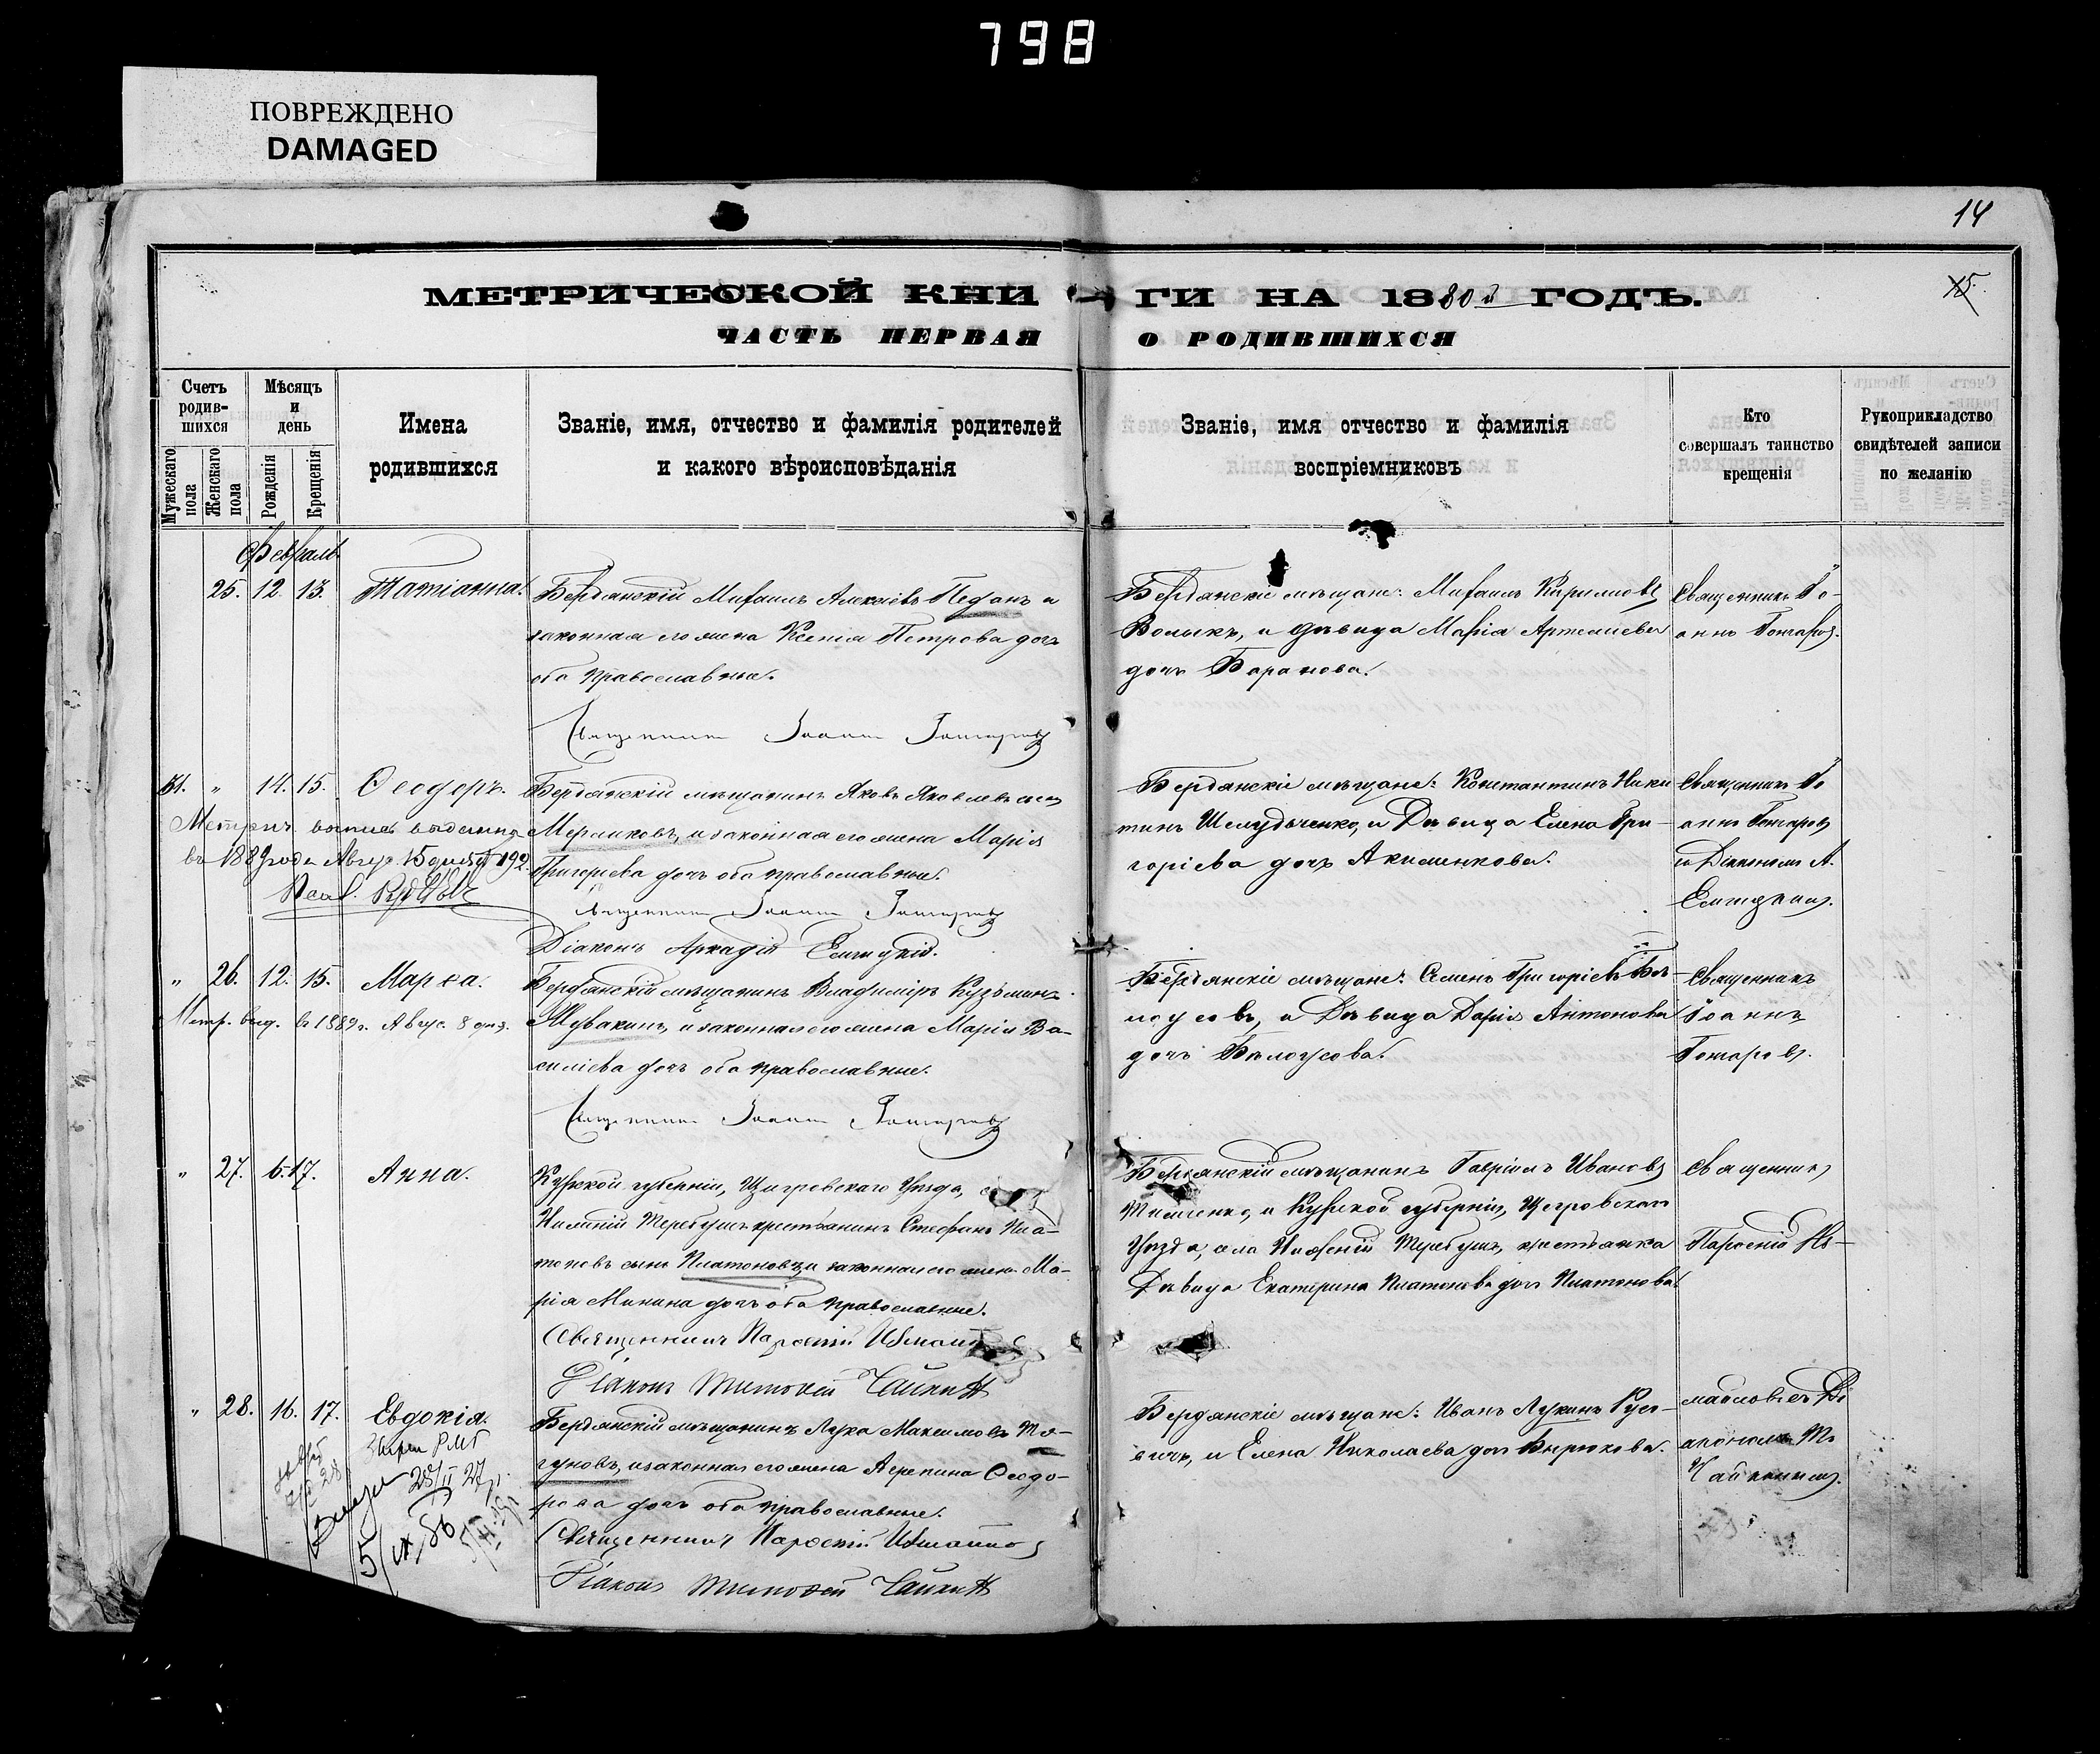 798
ПОВРЕЖДЕНО
DAMAGED
14
15.
МЕТРИЧЕСКОЙ КНИГИ НА 1880й ГОДЪ.
ЧАСТЬ ПЕРВАЯ О РОДИВШИХСЯ
Счетъ родившихся
Мужескаго пола
Женскаго пола
Мѣсяцъ и день
Рожденія
Крещенія
Имена родившихся
Званіе, имя, отчество и фамилія родителей
и какого вѣроисповѣданія
Званіе, имя отчество и фамилія
воспріемниковъ
Кто
совершалъ таинство
крещенія
Рукоприкладство
свидѣтелей записи
по желанію
Февраль
25. 12. 13. Татіанна.
Бердянскій Михаилъ Алексѣевъ Педанъ и
законная его жена Ксенія Петрова дочь
оба православные.
Священникъ Іоаннъ Гончаровъ
Бердянскіе мѣщане: Михаилъ Кириловъ
Волыкъ, и дѣвица Марія Артеміева
дочь Баранова.
Священникъ Іо-
аннъ Гончаровъ.
" 14. 15. Ѳеодоръ.
Бердянскій мѣщанинъ Яковъ Яковлевъ сынъ
Мерликовъ, и законная его жена Марія
Григорьева дочь оба православные.
Священникъ Іоаннъ Гончаровъ
Діаконъ Аркадій
въ 1889 года Авгус. 15 дня № 192.
Бердянскіе мѣщане: Константинъ Ники
тинъ Шелудченко, и Дѣвица Елена Гри-
горіева дочь Акименкова.
Священникъ Іо
аннъ Гончаровъ
съ Діакономъ А.
" 26. 12. 15. Марѳа.
Метр. выд. въ 1889 г. Авгус. 8 дня.
Бердянскій мѣщанинъ Владиміръ Кузьминъ
и законная его жена Марія Ва-
силіева дочь оба православные.
Священникъ Іоаннъ Гончаровъ
Бердянскіе мѣщане: Семенъ Григоріевъ Бѣ-
лоусовъ, и Дѣвица Дарія Антонова
дочь Бѣлоусова.
Священникъ
Іоаннъ
Гончаровъ.
" 27. 6. 17. Анна.
Курской губерніи, Щигровскаго Уѣзда,
Нижній Теребужъ крестьянинъ Стефанъ Пла-
тоновъ сынъ Платоновъ, и законная его жена Ма-
рія Минина дочь оба православные.
Священникъ Парѳеній
Діаконъ Тимоѳей Чайкин
Бердянскій мѣщанинъ Гавріилъ Ивановъ
Тимченко, и Курской губерніи, Щегровскаго
Уѣзда, села Нижній Теребужъ, крестьянка
Дѣвица Екатерина Платонова дочь Платонова.
Священникъ
Парѳеній Из-
" 28. 16. 17. Евдокія.
Бердянскій мѣщанинъ Лука Максимовъ
и законная его жена Агрепина Ѳеодо-
рова дочь оба православные.
Священникъ Парѳеній
Діаконъ Тимоѳей Чайкин
Бердянскіе мѣщане: Иванъ Лукинъ
и Елена Николаева дочь Бирюкова.
маиловъ съ Ді
акономъ Т.
Чайкинымъ.